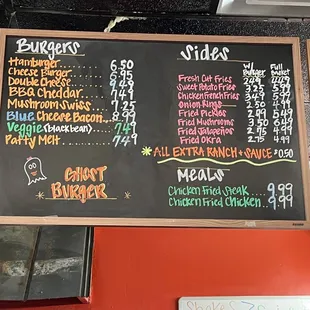 Burgers
Hamburger 6.50
Cheese Burger 6.95
Double Cheese 8.49
BBQ Cheddar 7.49
Mushroom Swiss 7.25
Blue Cheese Bacon 8.99
Veggie (black bean) 7.49
Patty Melt 7.49
Ghost
Burger
Sides
w/ Full
Burger Basket
Fresh Cut Fries
Sweet Potato Fries 3.25
Chicken French Fries 3.49
Onion Rings 2.50 4.99
Fried Pickles
Fried Mushrooms
Fried Jalapeños 2.75 4.99
Fried Okra
*All Extra Ranch + Sauce $0.50
Meals
Chicken Fried Steak 9.99
Chicken Fried Chicken 9.99
Shakes